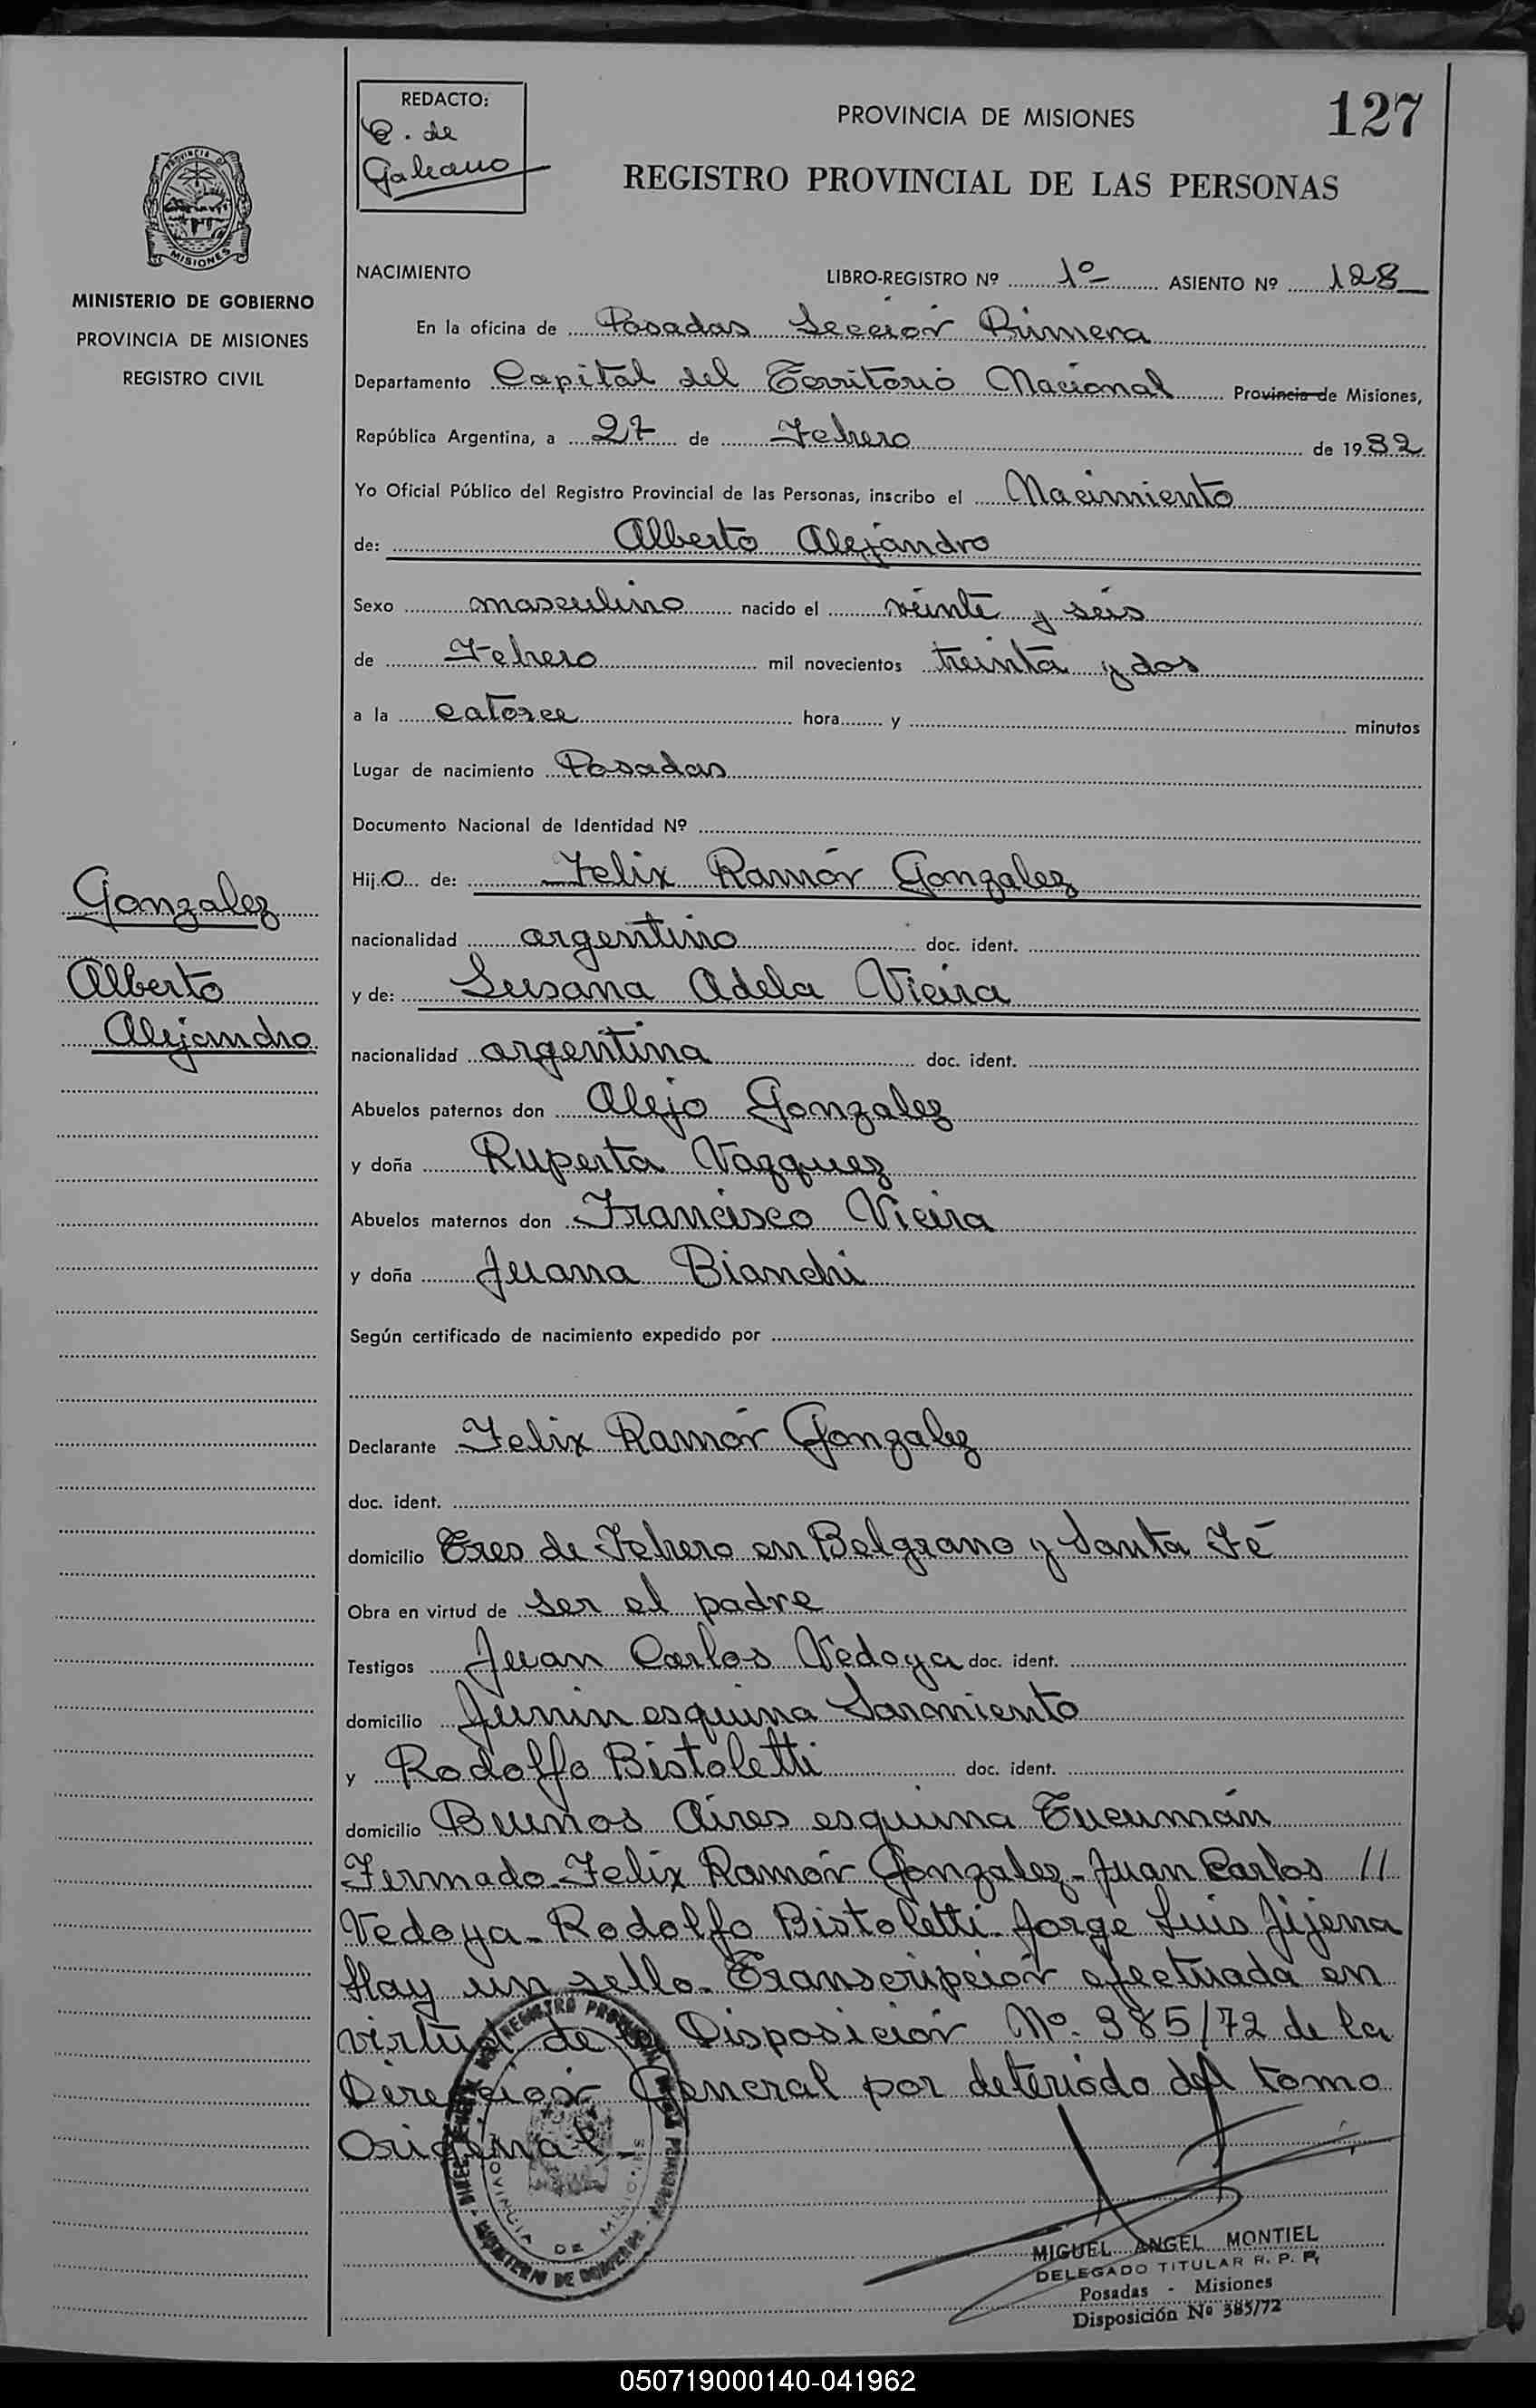 REDACTO:
C. de
Galeano
PROVINCIA DE MISIONES
127
REGISTRO PROVINCIAL DE LAS PERSONAS
PROVINCIA D
MISIONES
MINISTERIO DE GOBIERNO
PROVINCIA DE MISIONES
REGISTRO CIVIL
NACIMIENTO
LIBRO-REGISTRO Nº 1º ASIENTO Nº 128
En la oficina de Posadas Sección Primera
Departamento Capital del Territorio Nacional Provincia de Misiones,
República Argentina, a 27 de Febrero de 1932
Yo Oficial Público del Registro Provincial de las Personas, inscribo el Nacimiento
de: Alberto Alejandro
Sexo masculino nacido el veinte y seis
de Febrero mil novecientos treinta y dos
a la catorce hora y minutos
Lugar de nacimiento Posadas
Documento Nacional de Identidad Nº
Hijo de: Felix Ramón Gonzalez
nacionalidad argentino doc. ident.
y de: Susana Adela Vieira
nacionalidad argentina doc. ident.
Abuelos paternos don Alejo Gonzalez
y doña Ruperta Vazquez
Abuelos maternos don Francisco Vieira
y doña Juana Bianchi
Según certificado de nacimiento expedido por
Declarante Felix Ramón Gonzalez
doc. ident.
domicilio Tres de Febrero en Belgrano y Santa Fé
Obra en virtud de ser el padre
Testigos Juan Carlos Vedoya doc. ident.
domicilio Junin esquina Sarmiento
y Rodolfo Bistoletti doc. ident.
domicilio Buenos Aires esquina Tucumán
Firmado Felix Ramón Gonzalez - Juan Carlos //
Vedoya - Rodolfo Bistoletti - Jorge Luis Jijena
Hay un sello - Transcripción efectuada en
virtud de la Disposición Nº 385/72 de la
Dirección General por deteriodo del tomo
Original -
Gonzalez
Alberto
Alejandro
PROVINCIA DE MISIONES
MINISTERIO DE GOBIERNO
MIGUEL ANGEL MONTIEL
DELEGADO TITULAR R. P. P.
Posadas - Misiones
Disposición Nº 385/72
050719000140-041962